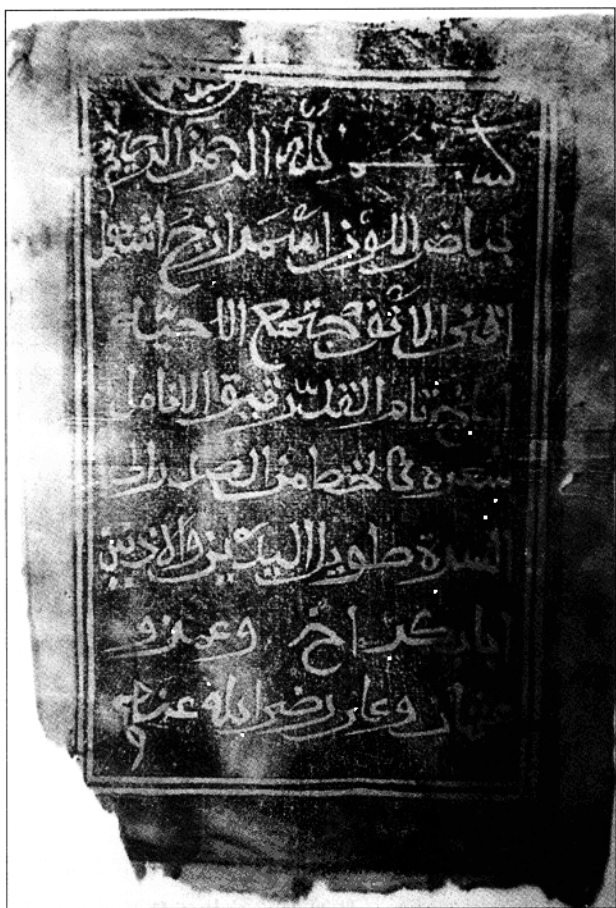 بسم الله الرحمن الرحيم
بياض اللون اسمر ازج اشعل
اقنى الانف مجتمع الاحياء
تام القد رقيق الانامل
شعره في خط من الصدر الى
السرة طويل اليدين والاذنين
ابا بكر اخ وعمر و
عثمان وعلي رضي الله عنهم